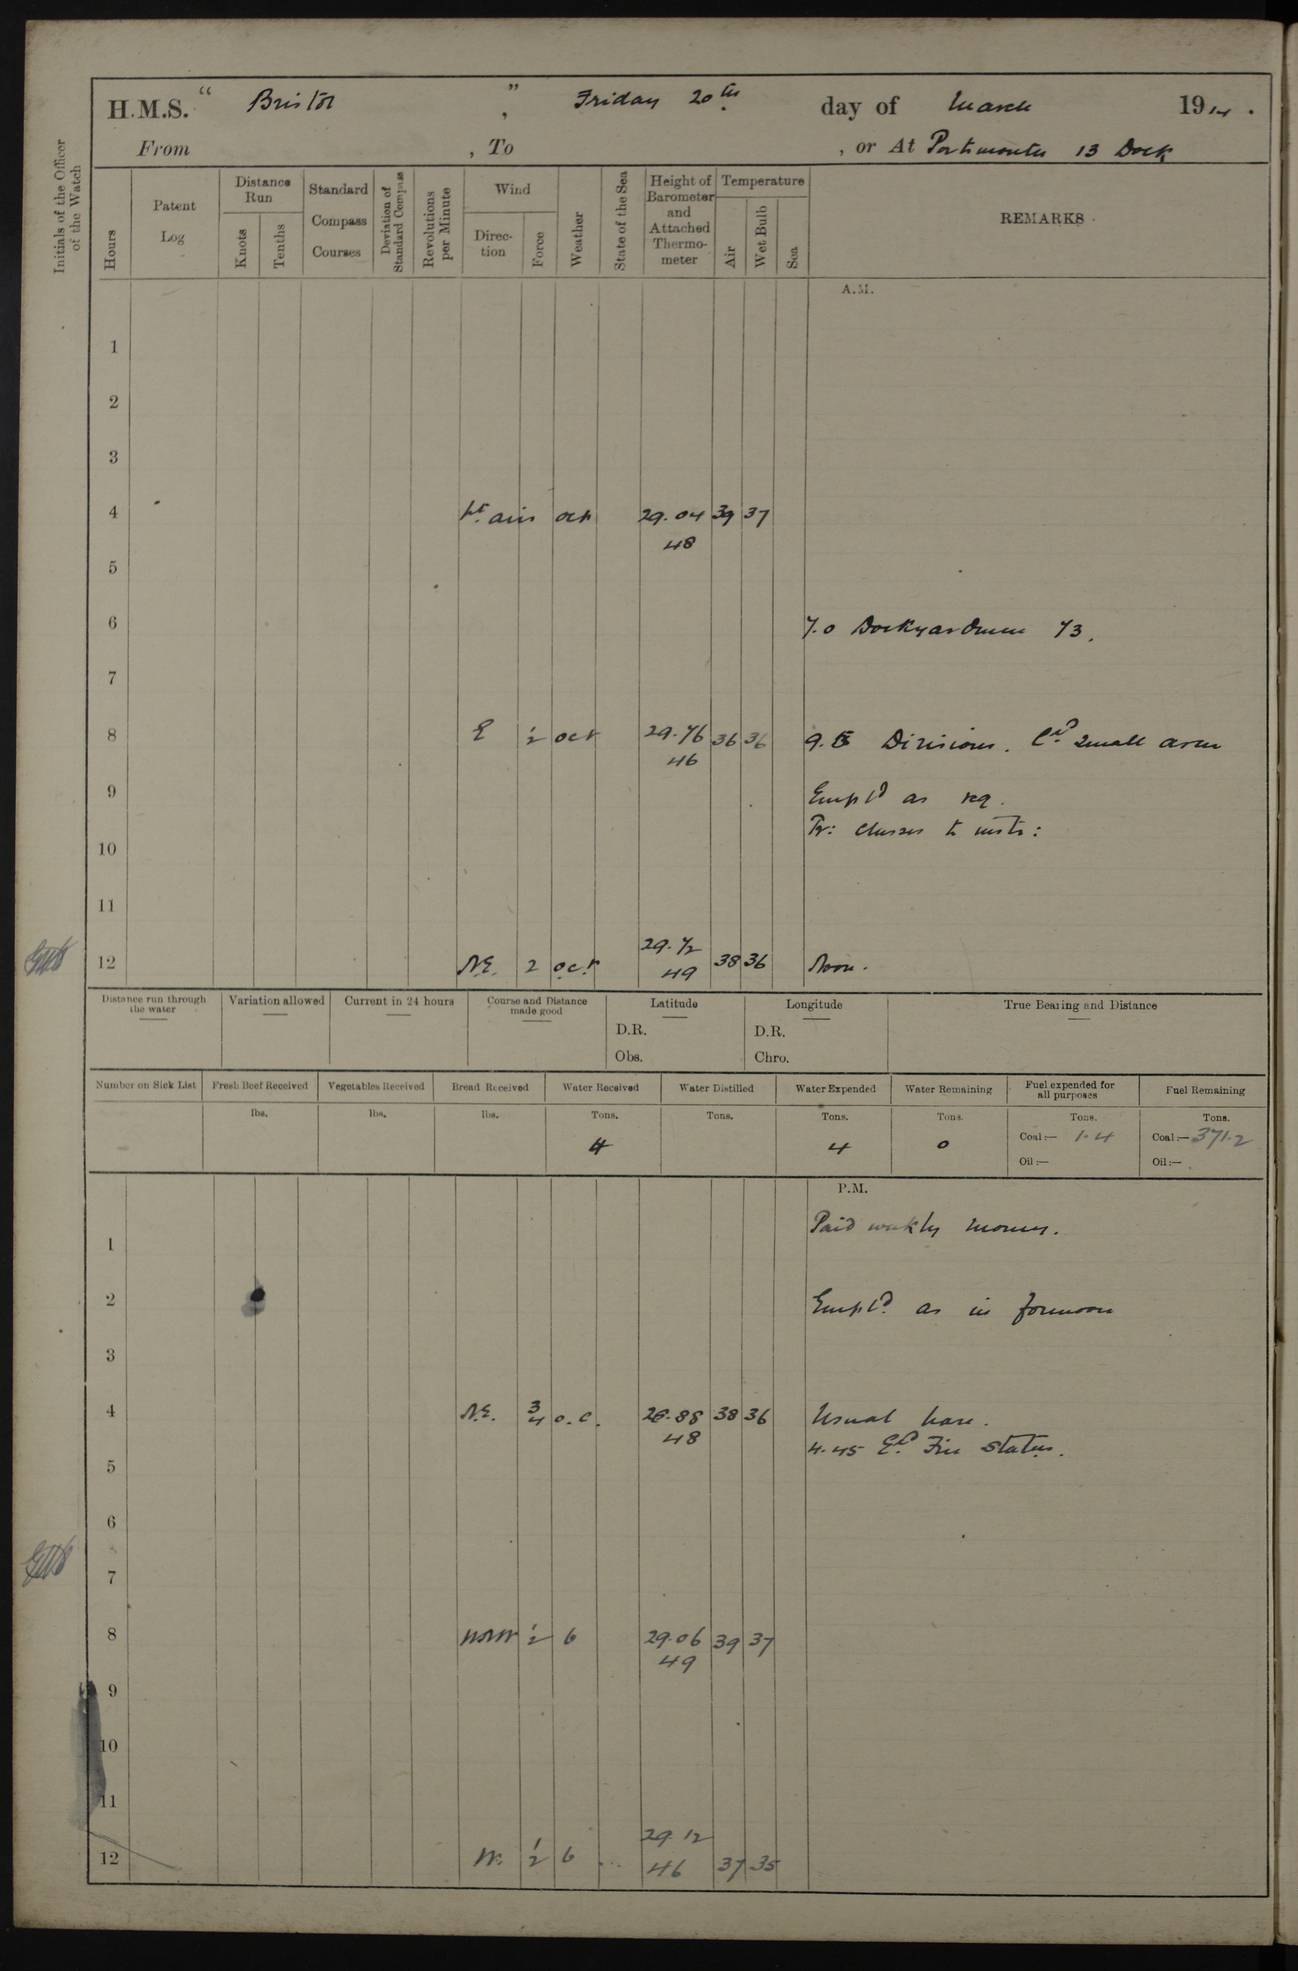 H.M.S. “ Bristol ” , Friday 20th day of March 1914 .
From , To , or At Portsmouth 13 Dock
Initials of the Officer of the Watch
Hours
Patent Log
Distance Run
Knots
Tenths
Standard Compass Courses
Deviation of Standard Compass
Revolutions per Minute
Wind
Direc-tion
Force
Weather
State of the Sea
Height of Barometer and Attached Thermo-meter
Temperature
Air
Wet Bulb
Sea
REMARKS
A.M.
1
2
3
4 Lt airs 29.04 39 37
48
5
6 7.0 Dockyardmen 73.
7
8 E 1-2 ocr 29.76 36 36 9. Divisions. Cd Small arm
46
9 Empld as req.
Tr: classes to instr:
10
11
29.72
12 N.E. 2 o.c.r 49 38 36 Noon.
Distance run through the water
Variation allowed
Current in 24 hours
Course and Distance made good
Latitude
D.R.
Obs.
Longitude
D.R.
Chro.
True Bearing and Distance
Number on Sick List
Fresh Beef Received lbs.
Vegetables Received lbs.
Bread Received lbs.
Water Received Tons. 4
Water Distilled Tons.
Water Expended Tons. 4
Water Remaining Tons. 0
Fuel expended for all purposes Tons.
Coal :— 1.4
Oil :—
Fuel Remaining Tons.
Coal :— 371.2
Oil :—
P.M.
Paid weekly money.
1
2 Empld. as in forenoon
3
4 N.E. 3-4 o.c. 28.88 38 36 Usual leave.
48 4.45 Exd Fire Stations.
5
6
7
8 WNW 1-2 b 29.06 39 37
49
9
10
11
29.12
12 W. 1-2 b ... 46 37 35